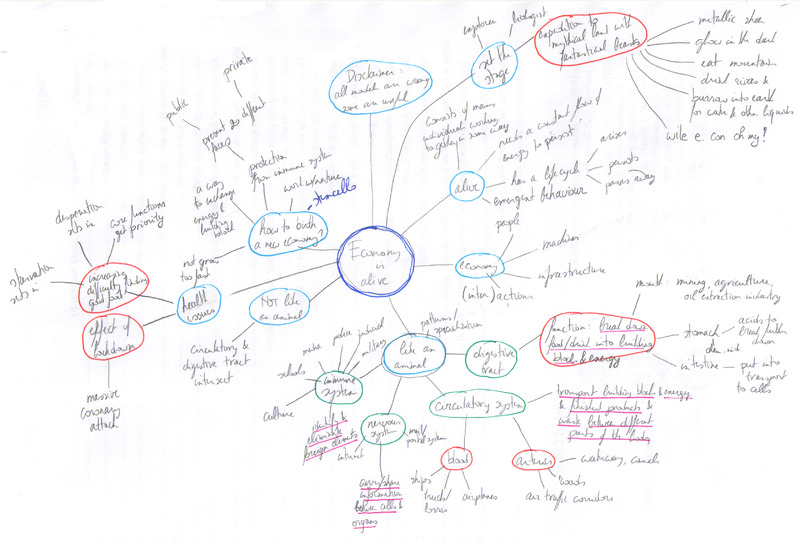 Economy
is
alive
Disclaimer:
all models are wrong
some are useful
set the
stage
explorer
biologist
expedition to
mythical land with
fantastical beasts
metallic sheen
glow in the dark
eat mountains
burrow into earth
for water & other liquids
wile e. con oh my!
alive
consists of many
individuals working
together in some way
needs a constant flow of
energy to persist
has a life cycle
arises
persists
passes away
emergent behaviour
economy
people
machines
infrastructure
(inter)actions
like an
animal
patterns/
specialization
digestive
tract
function: break down
food/drink into building
blocks & energy
mouth: mining, agriculture,
oil extraction industry
stomach
acids to
break
down
intestine
put into
transport
to cells
circulatory system
transport building blocks & energy
& finished products &
waste between different
parts of the body
blood
ships
trucks/
lorries
airplanes
arteries
waterway, canals
roads
air traffic corridors
nervous
system
internet
mail/
postal system
carry/share
information
between cells &
organs
immune
system
media
police
judicial
military
schools
culture
identify &
eliminate
foreign elements
NOT like
an animal
circulatory &
digestive tract
intersect
health
issues
not grow
too fast
increasing
difficulty finding
good food
desperation
sets in
core functions
get priority
starvation
sets in
effect of
lockdown
massive
coronary
attack
how to birth
a new economy?
a way
to exchange
energy &
building
blocks
present two different
faces
public
private
protection
from immune system
work w/nature
stemcells